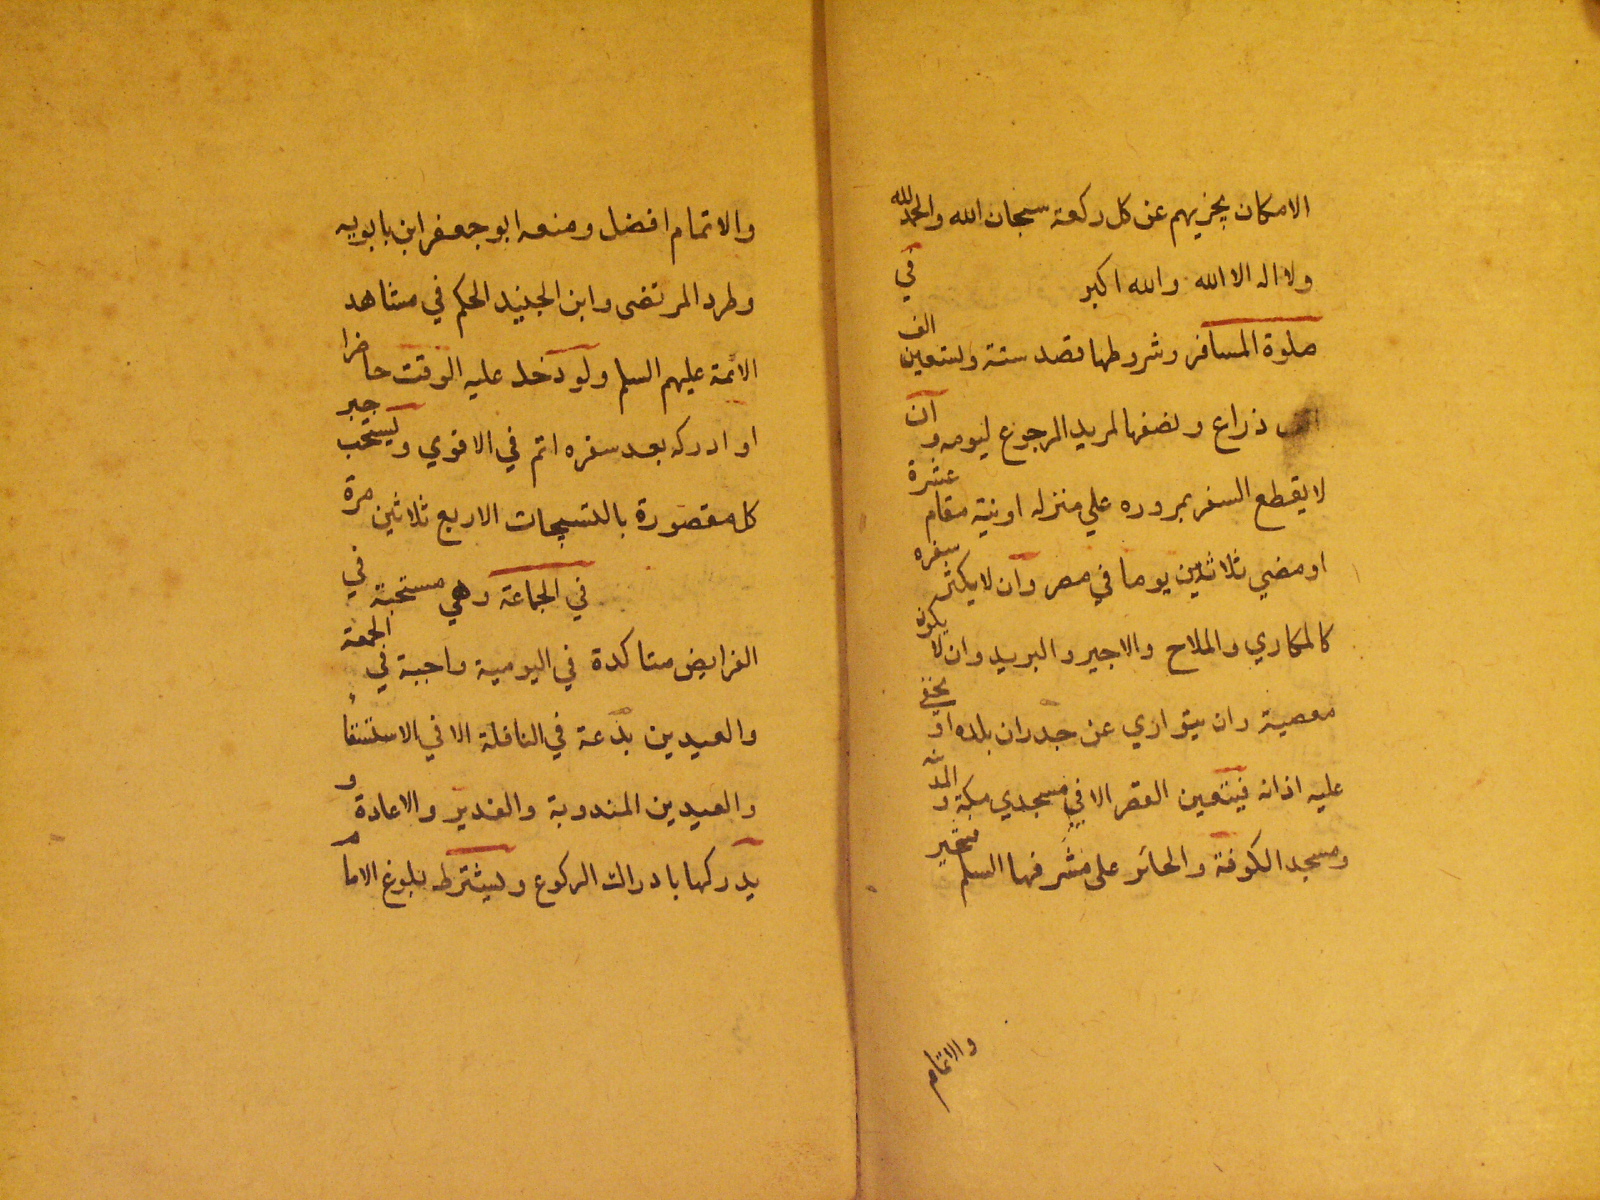 الامكان يجزيهم عن كل ركعة سبحان الله والحمد لله
ولا اله الا الله والله اكبر في
صلوة المسافر وشروطها قصد ستة وتسعين الف
ذراع ونصفها لمريد الرجوع ليومه وان
لا يقطع السفر بمروره علي منزله او نية مقام عشرة
او مضي ثلاثين يوما في مصر وان لا يكثر سفره
كالمكاري والملاح والاجير والبريد وان لا يكون
معصية وان يتواري عن جدران بلده او يخفي
عليه اذانه فيتعين القصر الا في مسجدي مكة والمدينة
ومسجد الكوفة والحائر على مشرفها السلم فتخير
والاتمام
والاتمام افضل ومنعه ابو جعفر ابن بابويه
وطرد المرتضى وابن الجنيد الحكم في مشاهد
الائمة عليهم السلم ولو دخل عليه الوقت حاضرا
او ادركه بعد سفره اتم في الاقوي ويستحب جبر
كل مقصورة بالتسبيحات الاربع ثلاثين مرة
في الجماعة وهي مستحبة في
الفرايض متاكدة في اليومية واجبة في الجمعة
والعيدين بدعة في النافلة الا في الاستسقاء
والعيدين المندوبة والغدير والاعادة و
يدركها بادراك الركوع ويشترط بلوغ الامام